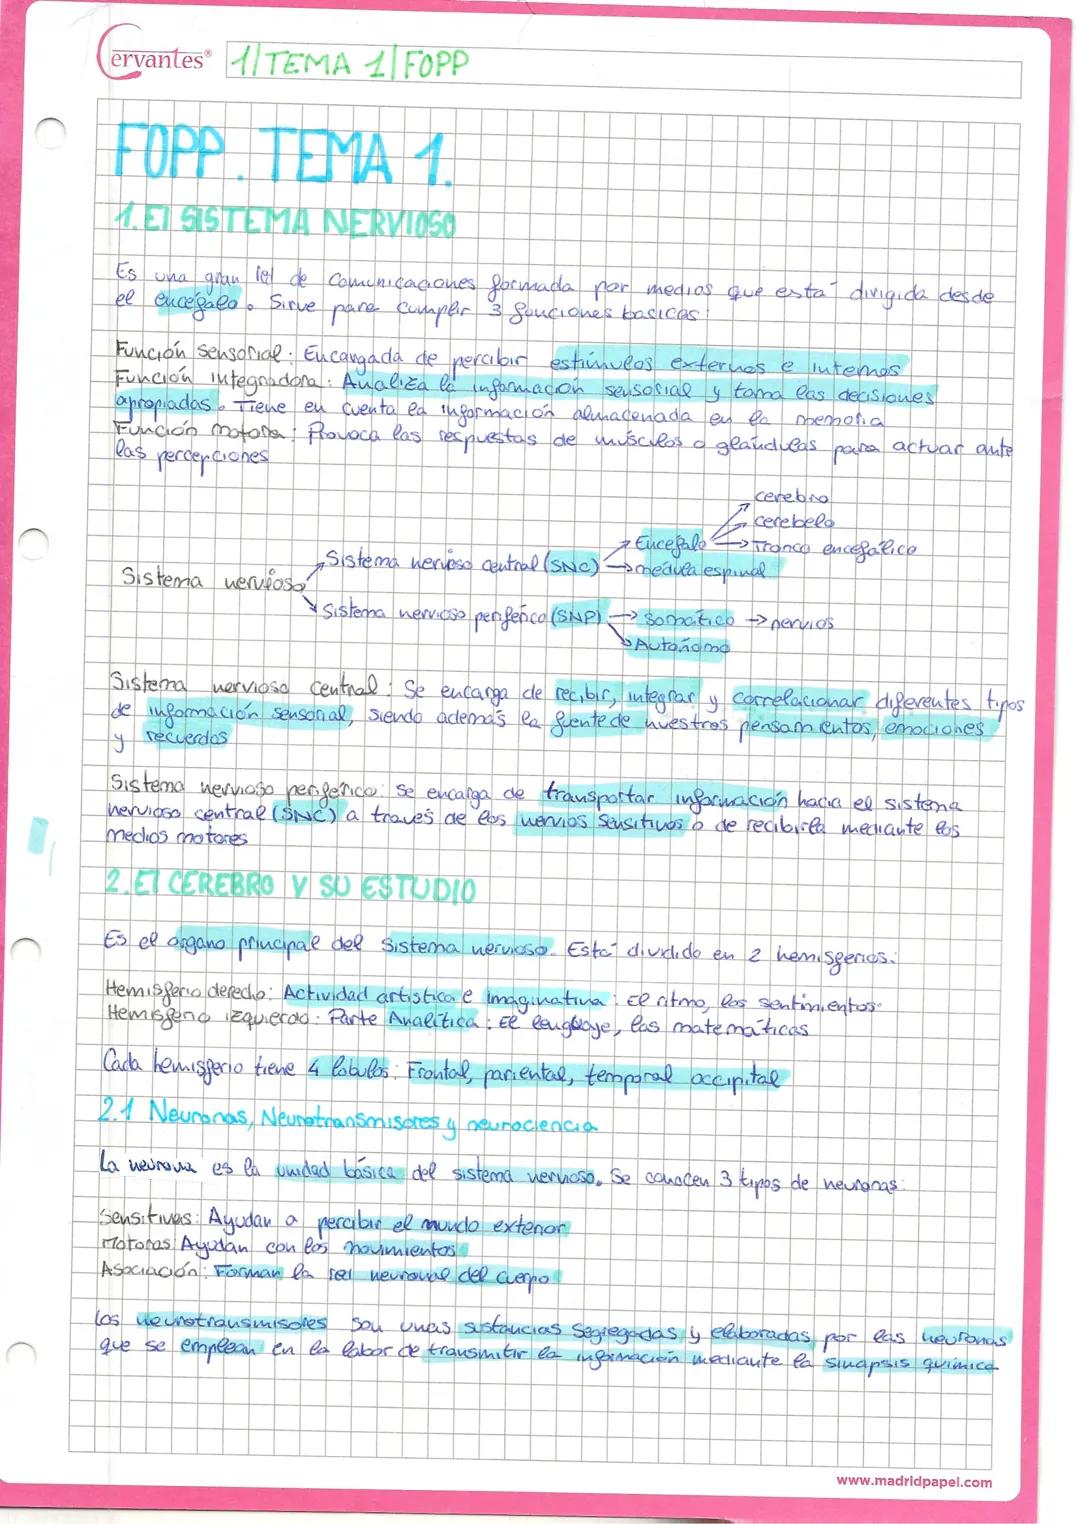 Cervantes® 1/TEMA 1/FOPP
FOPP. TEMA 1.
1. El SISTEMA NERVIOSO
Es una gran red de comunicaciones formada por medios que está dirigida desde
el encefalo. Sirve para cumplir 3 funciones basicas:
Función sensorial: Encargada de percibir estímulos externos e internos
Función integradora: Analiza la información sensorial y toma las decisiones
apropiadas. Tiene en cuenta la información almacenada en la memoria
Función motora: Provoca las respuestas de músculos o glándulas para actuar ante
las percepciones
cerebro
cerebelo
Encefalo → Tronco encefálico
Sistema nervioso central (SNC) → médula espinal
Sistema nervioso
Sistema nervioso periférico (SNP) → Somático → nervios
Autónomo
Sistema nervioso central: Se encarga de recibir, integrar y correlacionar diferentes tipos
de información sensorial, siendo además la fuente de nuestros pensamientos, emociones
y recuerdos
Sistema nervioso periférico: Se encarga de transportar información hacia el sistema
nervioso central (SNC) a través de los nervios sensitivos o de recibirla mediante los
medios motores
2. El CEREBRO Y SU ESTUDIO
Es el organo principal del sistema nervioso. Está dividido en 2 hemisferios:
Hemisferio derecho: Actividad artistica e imaginativa: El ritmo, los sentimientos
Hemisferio izquierdo: Parte Analítica: El lenguaje, las matemáticas
Cada hemisferio tiene 4 lobulos: Frontal, pariental, temporal occipital
2.1 Neuronas, Neurotransmisores y neurociencia
La neurona es la unidad básica del sistema nervioso. Se conocen 3 tipos de neuronas:
Sensitivas: Ayudan a percibir el mundo exterior
Motoras: Ayudan con los movimientos
Asociación: Forman la red neuronal del cuerpo
Los neurotransmisores son unas sustancias segregadas y elaboradas por las neuronas
que se emplean en la labor de transmitir la información mediante la sinapsis química
www.madridpapel.com